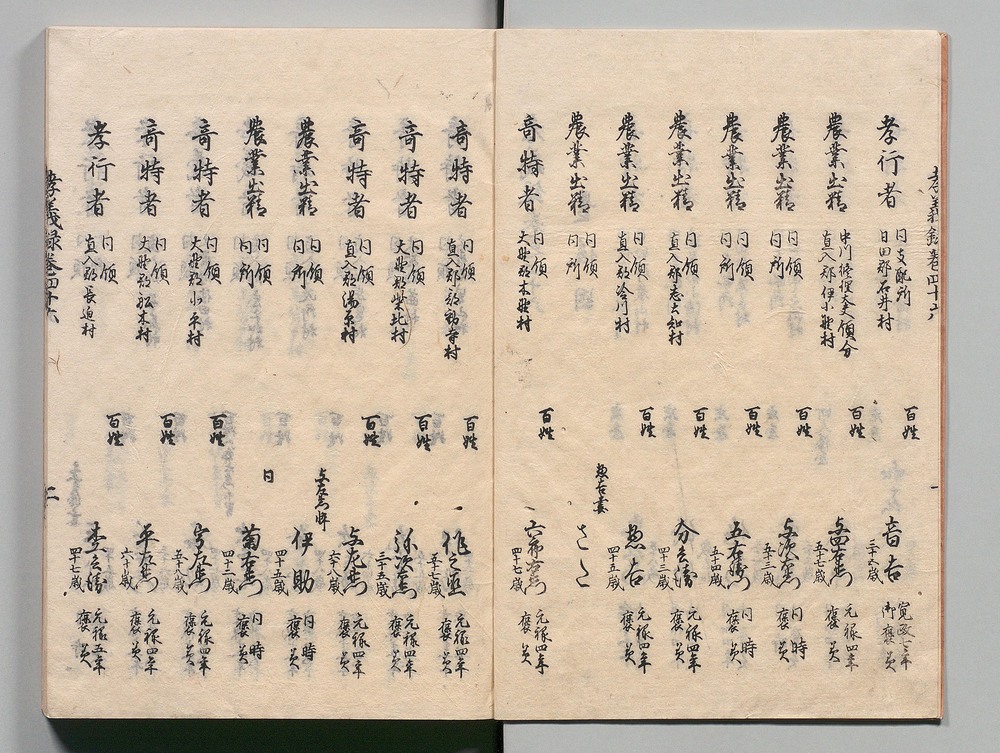 孝義録巻四十六
孝行者
同支配所
日田郡石井村
百姓
音吉
三十六歳
寛政三年
御褒美
農業出精
中川修理大夫領分
直入郡伊小野村
百姓
五十七歳
元禄四年
褒美
農業出精
同領
同所
百姓
五十三歳
同時
褒美
農業出精
同領
同所
百姓
五右衛門
五十四歳
同時
褒美
農業出精
同領
直入郡志土知村
百姓
四十三歳
元禄四年
褒美
農業出精
同領
直入郡冷川村
百姓
惣右
四十五歳
元禄四年
褒美
農業出精
同領
同所
惣右妻
さこ
奇特者
同領
大野郡木野村
百姓
四十七歳
元禄四年
褒美
奇特者
同領
百姓
作之丞
五十七歳
元禄四年
褒美
奇特者
同領
大野郡柴北村
百姓
弥次兵衛
三十五歳
元禄四年
褒美
奇特者
同領
直入郡湯原村
百姓
与左衛門
六十八歳
元禄四年
褒美
農業出精
同領
同所
与左衛門悴
伊助
四十五歳
同時
褒美
農業出精
同領
同所
同
菊右衛門
四十二歳
同時
褒美
奇特者
同領
大野郡小原村
百姓
五十八歳
元禄四年
褒美
奇特者
同領
大野郡松木村
百姓
平左衛門
六十歳
元禄四年
褒美
孝行者
同領
直入郡長迫村
百姓
四十七歳
元禄五年
褒美
孝義録巻四十六
二